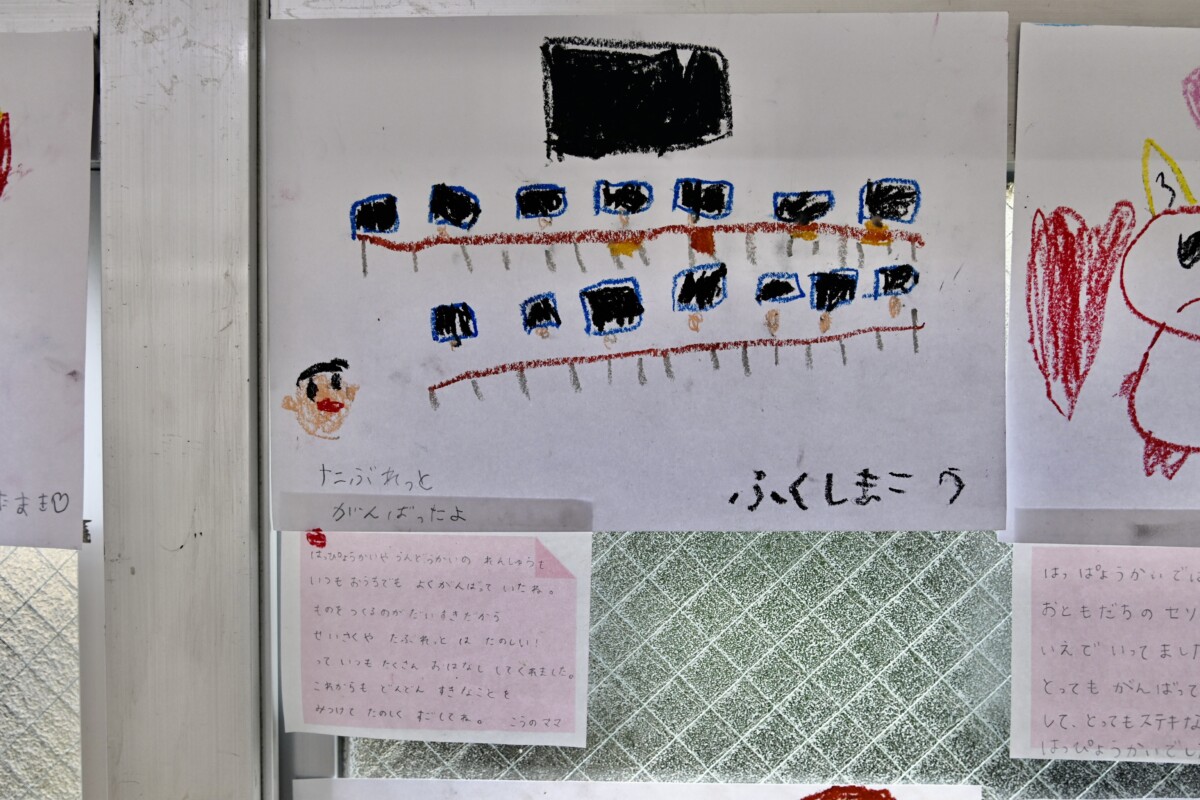 たまき♡
たぶれっと
がんばったよ
ふくしまこう
はっぴょうかいや うんどうかいの れんしゅうも
いつも おうちでも よくがんばって いたね。
ものを つくるのが だいすきだから
せいさくや たぶれっと は たのしい!
って いつも たくさん おはなし してくれました。
これからも どんどん すきなことを
みつけて たのしく すごしてね。 こうのママ
3
はっぴょうかいでは
おともだちの セリ
いえで いってました
とっても がんばって
して、とってもステキな
はっぴょうかいでし